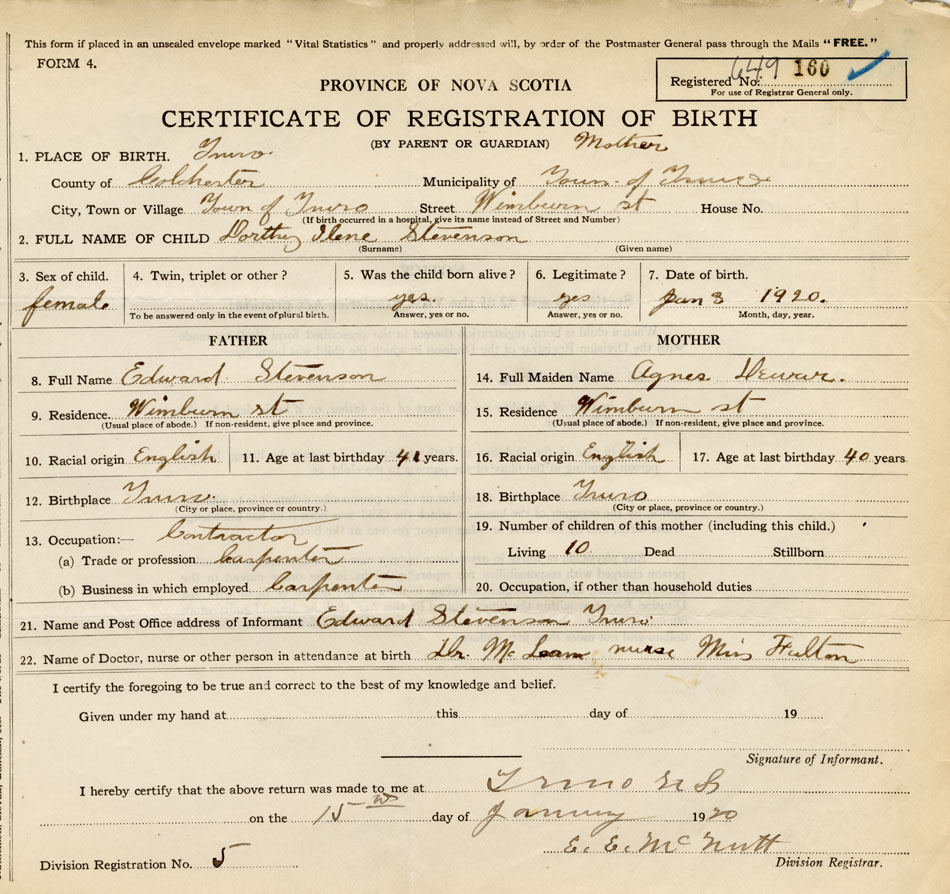 This form if placed in an unsealed envelope marked "Vital Statistics" and properly addressed will, by order of the Postmaster General pass through the Mails "FREE."
FORM 4.
649 160
Registered No.
For use of Registrar General only.
PROVINCE OF NOVA SCOTIA
CERTIFICATE OF REGISTRATION OF BIRTH
(BY PARENT OR GUARDIAN) Mother
1. PLACE OF BIRTH. Truro.
County of Colchester Municipality of Town of Truro
City, Town or Village Town of Truro Street Wimburn st House No.
(If birth occurred in a hospital, give its name instead of Street and Number)
2. FULL NAME OF CHILD Dorthy Ilene Stevenson
(Surname) (Given name)
3. Sex of child. 4. Twin, triplet or other? 5. Was the child born alive? 6. Legitimate? 7. Date of birth.
female yes. yes Jan 3 1920.
To be answered only in the event of plural birth. Answer, yes or no. Answer, yes or no. Month, day, year.
FATHER MOTHER
8. Full Name Edward Stevenson 14. Full Maiden Name Agnes Dewar.
9. Residence. Wimburn st 15. Residence Wimburn st
(Usual place of abode.) If non-resident, give place and province. (Usual place of abode.) If non-resident, give place and province.
10. Racial origin English 11. Age at last birthday 41 years. 16. Racial origin English 17. Age at last birthday 40 years
12. Birthplace Truro. 18. Birthplace Truro
(City or place, province or country.) (City or place, province or country.)
13. Occupation:— Contractor 19. Number of children of this mother (including this child.)
(a) Trade or profession Carpenter Living 10 Dead Stillborn
(b) Business in which employed Carpenter 20. Occupation, if other than household duties
21. Name and Post Office address of Informant Edward Stevenson Truro
22. Name of Doctor, nurse or other person in attendance at birth Dr. McLean nurse Miss Fulton
I certify the foregoing to be true and correct to the best of my knowledge and belief.
Given under my hand at this day of 19
Signature of Informant.
I hereby certify that the above return was made to me at Truro N S
on the 15 day of January 1920
E. E. McNutt
Division Registration No. 5 Division Registrar.